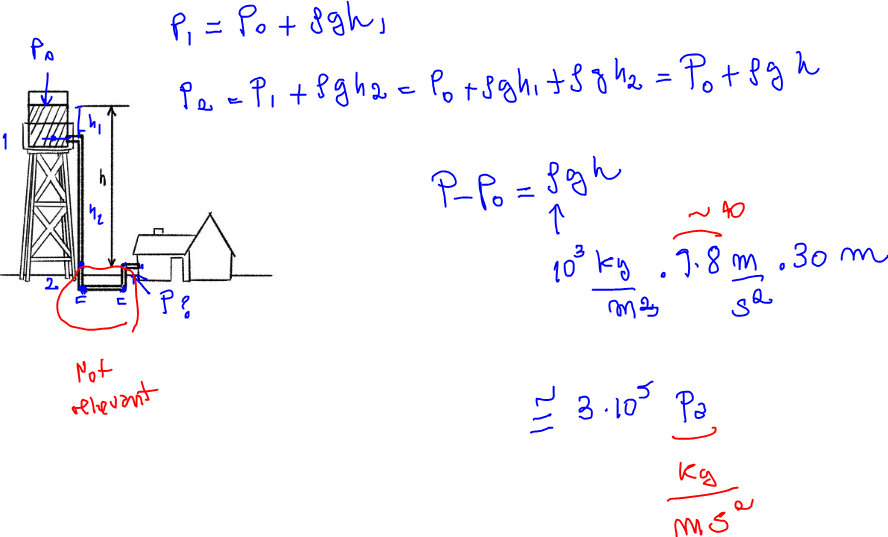 P₁ = P₀ + ρgh₁
P₂ = P₁ + ρgh₂ = P₀ + ρgh₁ + ρgh₂ = P₀ + ρgh
P₀
1
h₁
h
h₂
2
P?
Not
relevant
P - P₀ = ρgh
↑
~ 10
10³ kg/m³ · 9.8 m/s² · 30 m
≅ 3·10⁵ Pa
kg/ms²